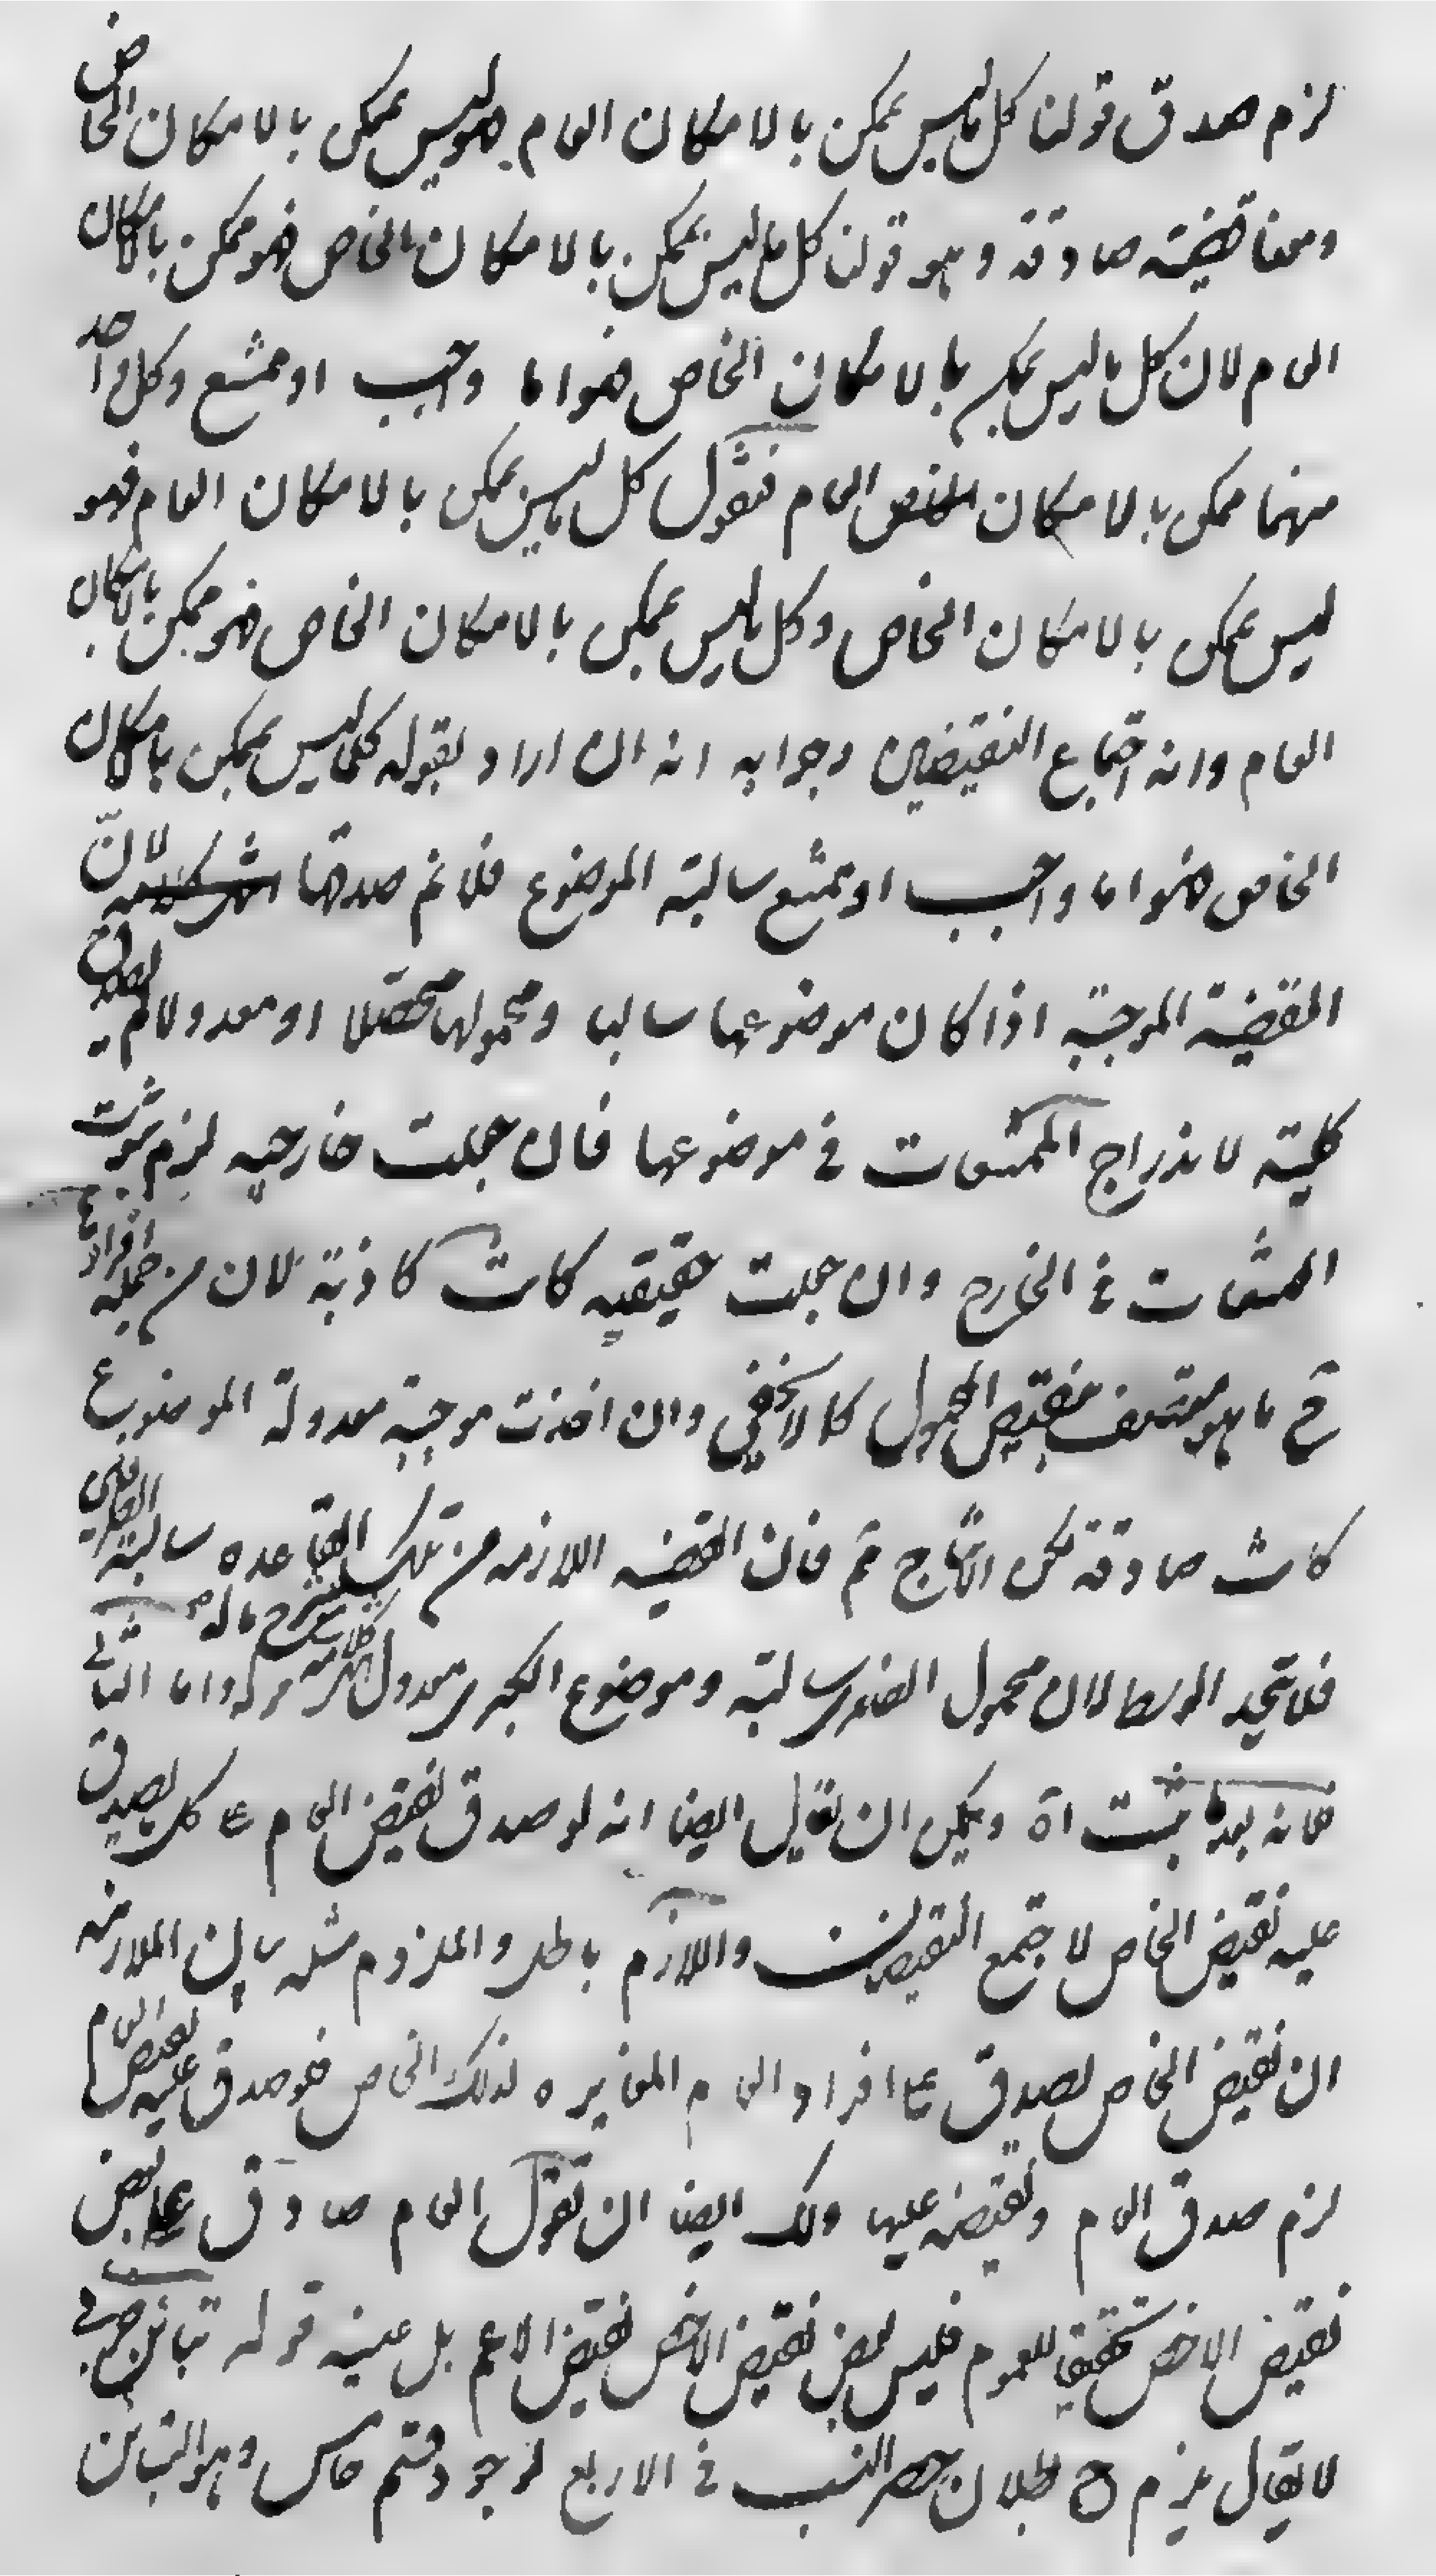 لزم صدق قولنا كل ما ليس بممكن بالامكان العام فهو ليس بممكن بالامكان الخاص
ومعنا قضية صادقة وهو قولنا كل ما ليس بممكن بالامكان الخاص فهو ممكن بالامكان
العام لان كل ما ليس بممكن بالامكان الخاص فهو اما واجب او ممتنع وكل واحد
منهما ممكن بالامكان العام فنقول كل ما ليس بممكن بالامكان العام فهو
ليس بممكن بالامكان الخاص وكل ما ليس بممكن بالامكان الخاص فهو ممكن بالامكان
العام وانه اجتماع النقيضين وجوابه انه ان اراد بقوله كل ما ليس بممكن بالامكان
الخاص فهو اما واجب او ممتنع سالبة الموضوع فلا نم صدقها لان
القضية الموجبة اذا كان موضوعها سالبا ومحمولها محصلا او معدولا لم يصدق
كلية لاندراج الممتنعات في موضوعها فان جعلت خارجيه لزم ثبوت
الممتنعات في الخارج وان جعلت حقيقيه كانت كاذبة لان من جملة افرادها
ح ما هو متصف بنقيض المحمول كما لا يخفى وان اخذت موجبة معدولة الموضوع
كانت صادقة لكن الانتاج مم فان القضيه اللازمه من تلك القاعده سالبة الطرفين
فلا يتحد الوسط لان محمول الصغرى سالبة وموضوع الكبرى معدول قوله واما الثاني
فلانه بعد ما ثبت اه ويمكن ان يقال ايضا انه لو صدق نقيض العام على كل ما يصدق
عليه نقيض الخاص لاجتمع النقيضان واللازم باطل والملزوم مثله بيان الملازمه
ان نقيض الخاص يصدق على افراد العام المغايره لذلك الخاص فلو صدق عليه نقيض العام
لزم صدق العام ونقيضه عليها ولك ايضا ان تقول العام صادق على بعض
نقيض الاخص تحقيقا للعموم فليس بعض نقيض الاخص نقيض الاعم بل عينه قوله تباين جزئي
لا يقال يلزم ح بطلان حصر النسب في الاربع لوجود قسم خامس وهو التباين